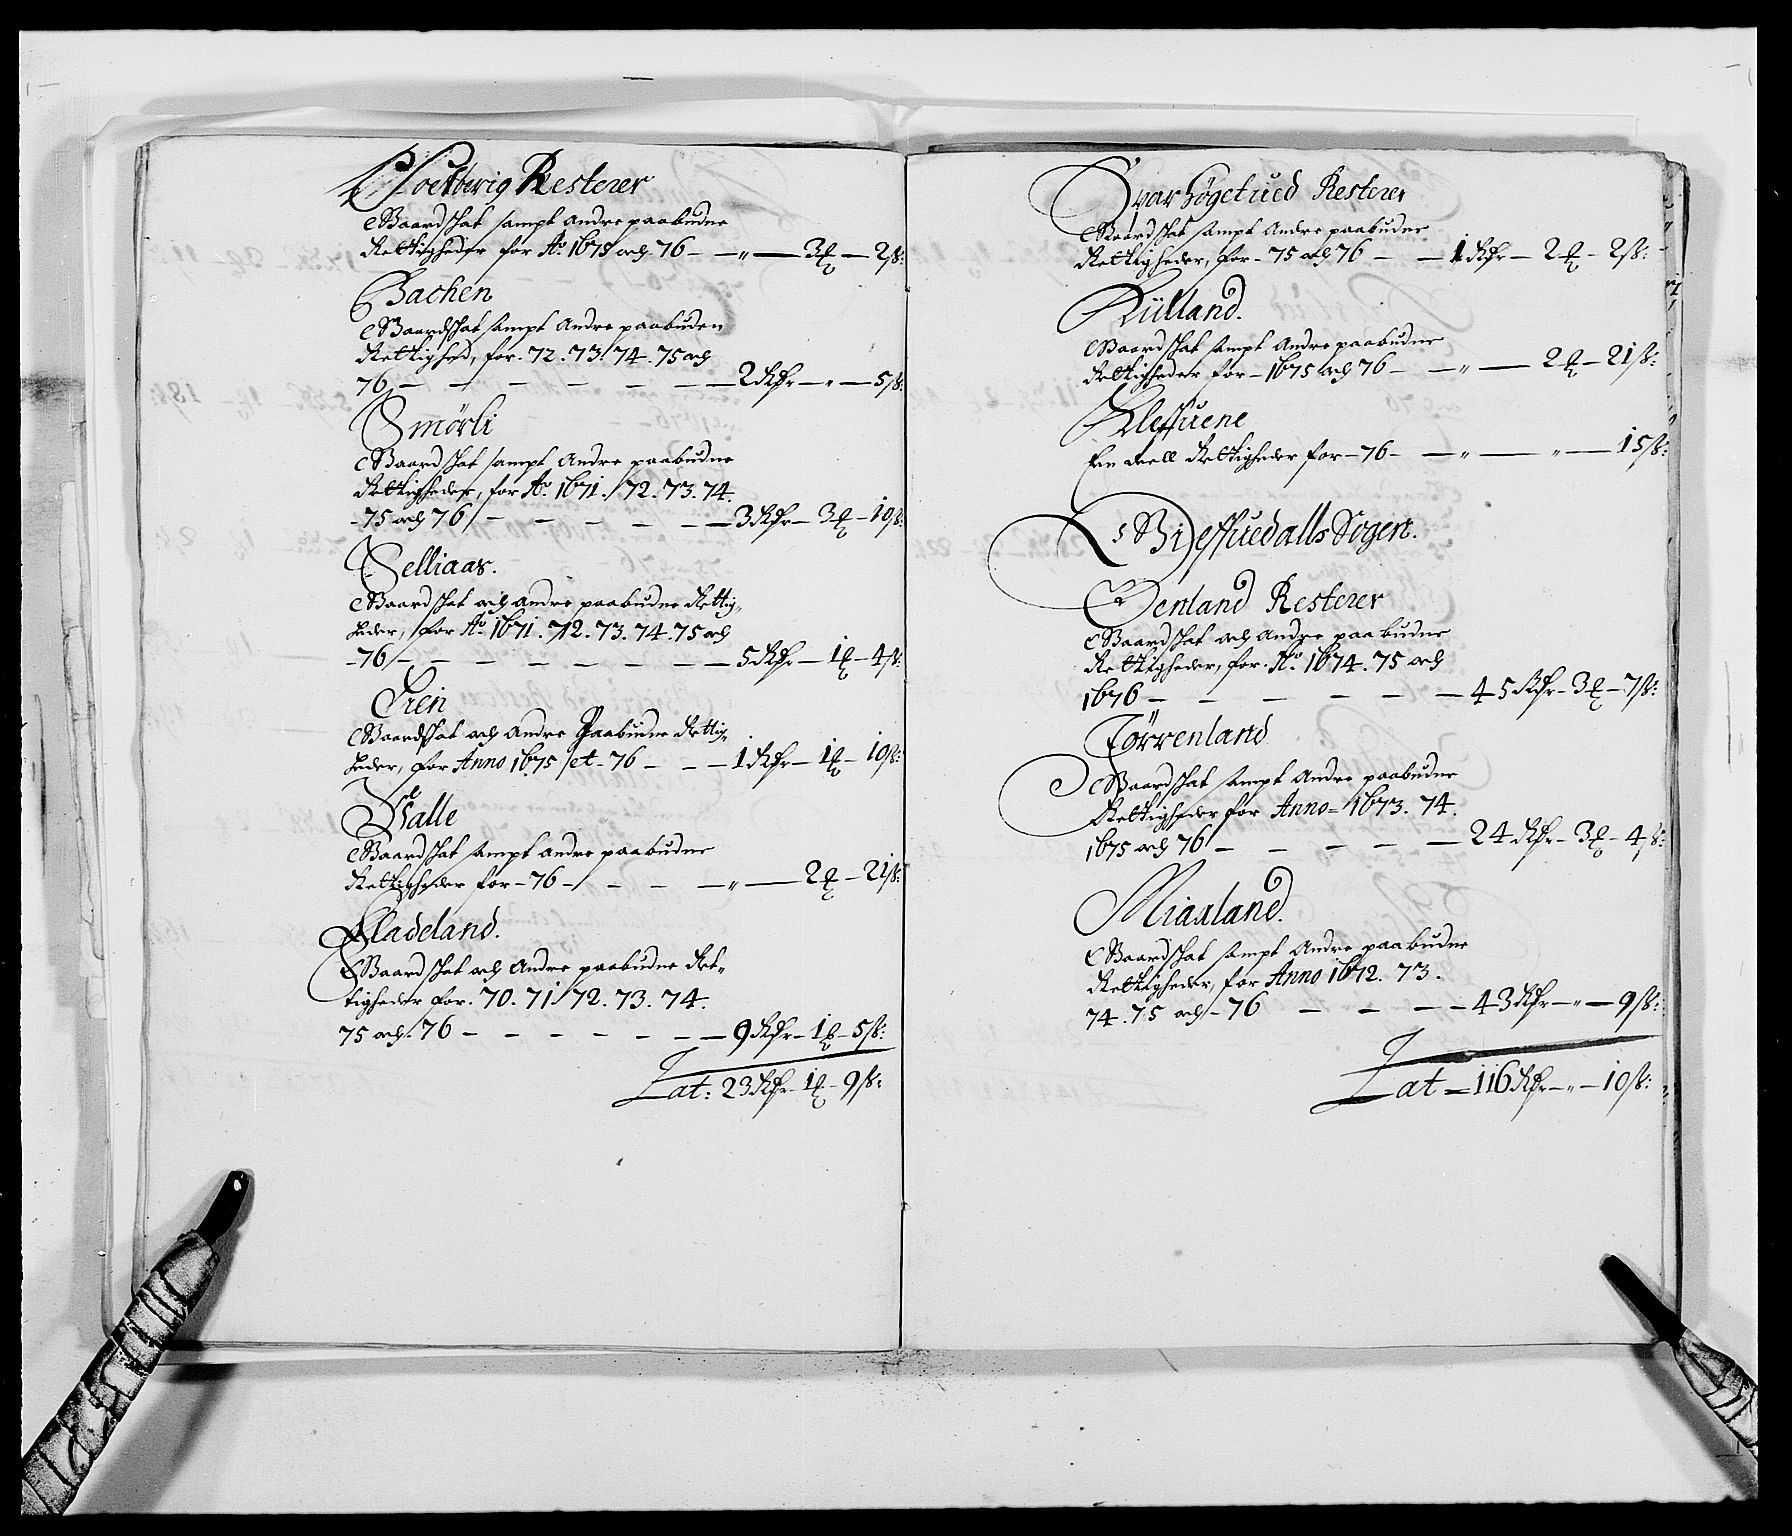 Hoetberig Resterer
Gaardskat sampt Andre paabudne
Rettigheder for Ao. 1675 och 76 - - „ - 3 ℔ - 2 ß:
Bachen
Gaardskat sampt Andre paabuden
Rettighed, for. 72. 73. 74. 75 och
76, - - - - - - 2 Rdr - „ - 5 ß:
Smörli
Gaardskat sampt Andre paabudne
Rettigheder, for Ao. 1671. 72. 73. 74.
-75 och 76 - - - - - 3 Rdr - 3 ℔ - 10 ß:
Selliaas.
Gaardskat och Andre paabudne Rettig„
heder, for Ao. 1671. 72. 73. 74. 75 och
-76 - - - - - - 5 Rdr - 1 ℔ - 4 ß:
Trei
Gaardskat och Andre Paabudne Rettig„
heder, for Anno 1675 et - 76 - - - 1 Rdr - 1 ℔ - 10 ß:
Valle
Gaardskat sampt andre paabudne
Rettigheder for - 76 - - - - „ - 2 ℔ - 21 ß:
Fladeland.
Gaardskat och Andre paabudne Ret„
tigheder for. 70. 71. 72. 73. 74.
75 och. 76 - - - - - - 9 Rdr - 1 ℔ - 5 ß:
Lat: 23 Rdr - 1 ℔ - 9 ß:
Svarhögetued Resterer
Gaardskat sampt Andre paabudne
Rettigheder, for - 75 och 76 - - 1 Rdr - 2 ℔ - 2 ß:
Külland.
Gaardskat sampt Andre paabudne
Rettigheder for - 1675 och 76 - - „ - 2 ℔ - 21 ß:
Klefsuene
Een deell Rettigheder for - 76 - - „ - „ - 15 ß:
Biefsuedalls Sogen.
Denland Resterer
Gaardskat och Andre paabudne
Rettigheder, for. Ao. 1674. 75 och
1676 - - - - - - 45 Rdr - 3 ℔ - 7 ß:
Törrenland
Gaardskat sampt Andre paabudne
Rettigheder for Anno = 1673. 74.
1675 och 76 - - - - - 24 Rdr - 3 ℔ - 4 ß:
Miaaland.
Gaardskat sampt Andre paabudne
Rettigheder, for Anno 1672. 73.
74. 75 och - 76 - - - - 43 Rdr - „ - 9 ß:
Lat - 116 Rdr - „ - 10 ß: